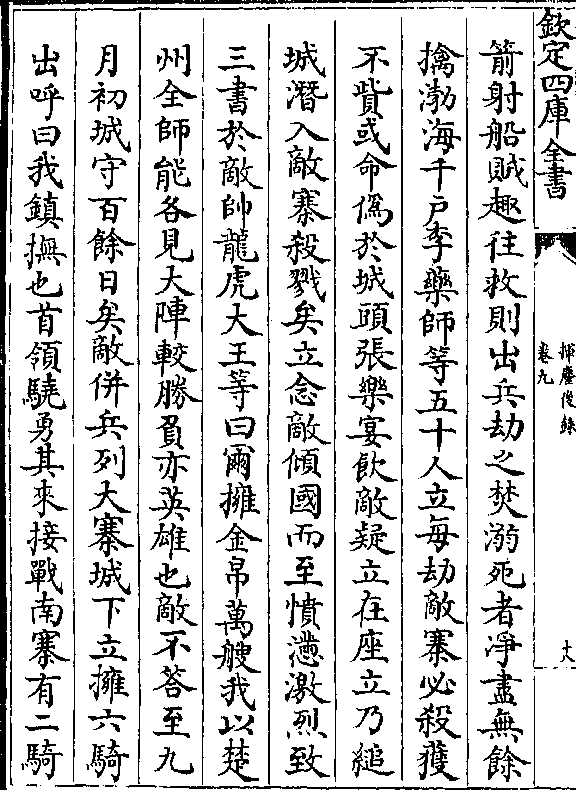 欽定四庫全書
揮麈後錄
卷九
十八
箭射船賊趣往救則出兵劫之焚溺死者淨盡無餘
擒渤海千戶李藥師等五十人立每劫敵寨必殺獲
不貲或命僞於城頭張樂宴飲敵疑立在座立乃縋
城潛入敵寨殺戮矣立念敵傾國而至憤懣激烈致
三書於敵帥龍虎大王等曰爾擁金帛萬艘我以楚
州全師能各見大陣較勝負亦英雄也敵不荅至九
月初城守百餘日矣敵併兵列大寨城下立擁六騎
出呼曰我鎮撫也首領驍勇其來接戰南寨有二騎